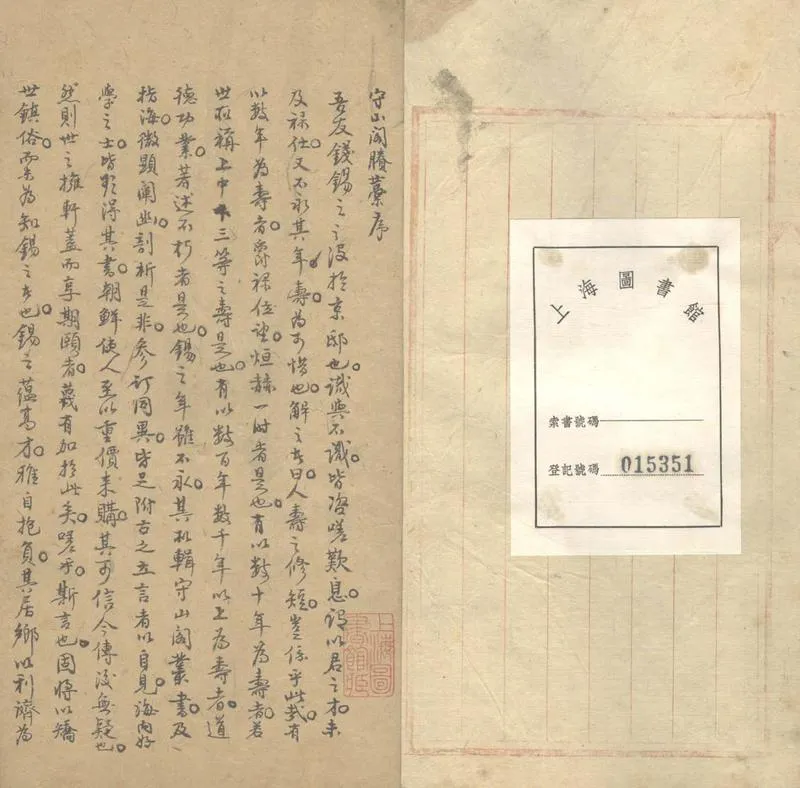 上海圖書館
索書號碼
登記號碼 015351
守山閣賸藁序
吾友錢錫之之沒於京邸也。識與不識。皆咨嗟歎息。謂以君之才。未
及祿仕。又不永其年。壽為可惜也。解之者曰。人壽之修短。豈係乎此哉。有
以數年為壽者。爵祿位望。烜赫一時者是也。有以數十年為壽者。若
世所稱上中下三等之壽是也。有以數百年數千年以上為壽者。道
德功業。著述不朽者是也。錫之年雖不永。其所輯守山閣叢書及
指海。微顯闡幽。剖析是非。參訂同異。皆足附古之立言者以自見。海內好
學之士。皆欲得其書。朝鮮使人至以重價來購。其可信今傳後無疑也。
然則世之擁軒蓋而享期頤者。蔑有加於此矣。嗟乎。斯言也。固將以矯
世鎮俗。而未為知錫之者也。錫之蘊高才。雅自抱負。其居鄉以利濟為
上海圖書館藏